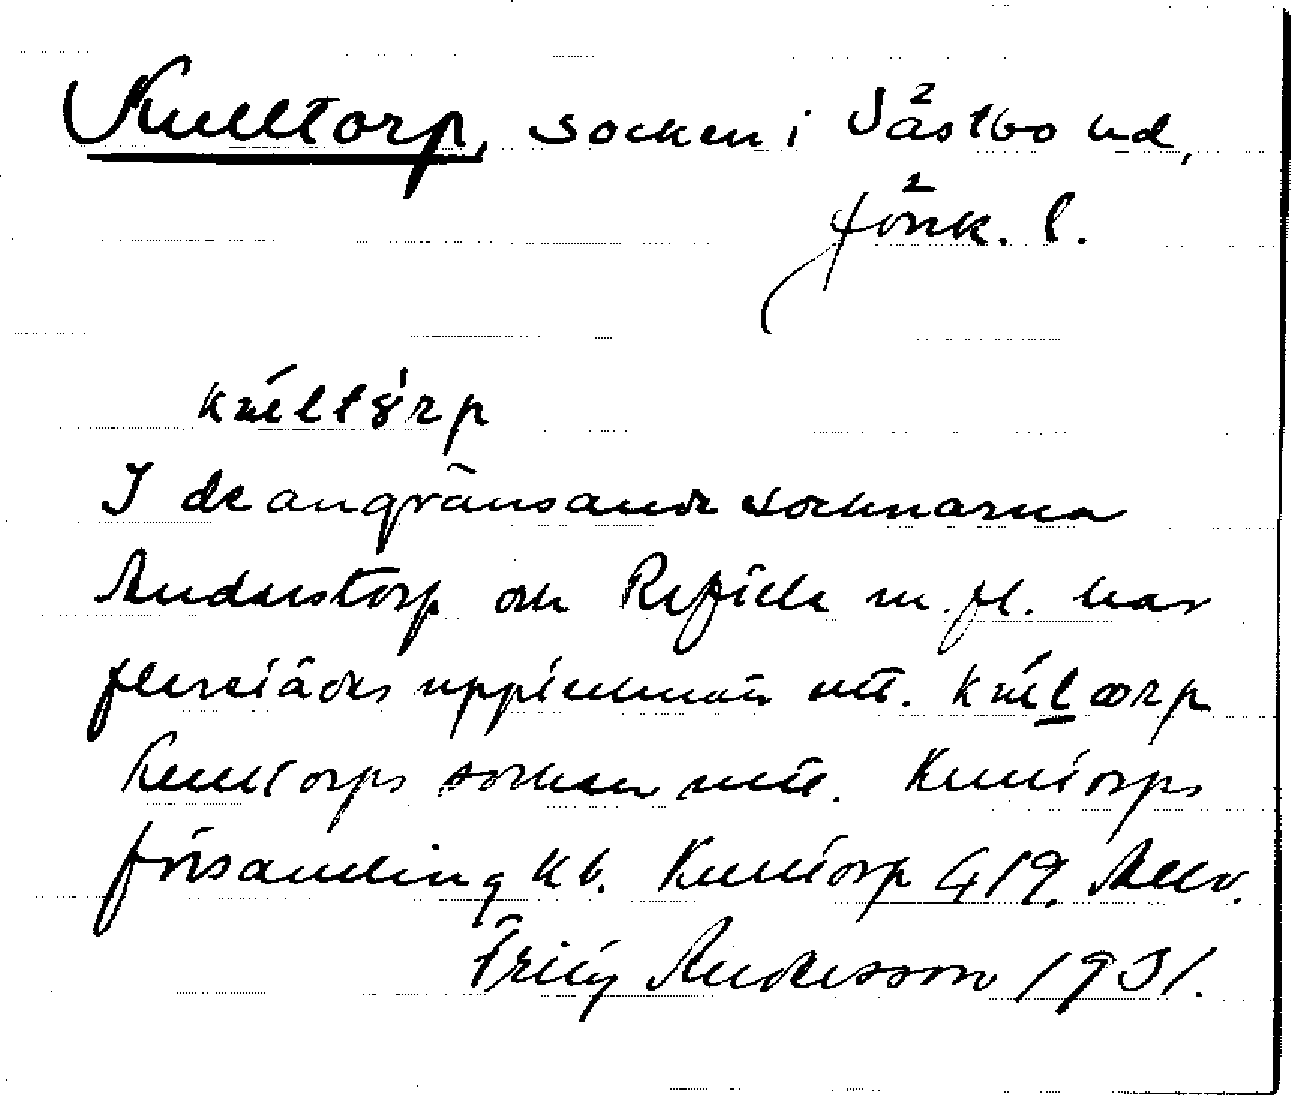 Kulltorp, socken i Västbo hd,
Jönk. l.
I de angränsande socknarna
Anderstorp och Reftele m. fl. har
flerstädes upptecknats utt.
Kulltorps socken utt. Kulltorps
församling kb. Kulltorp G 19. Medd.
Fritiof Andersson 1931.